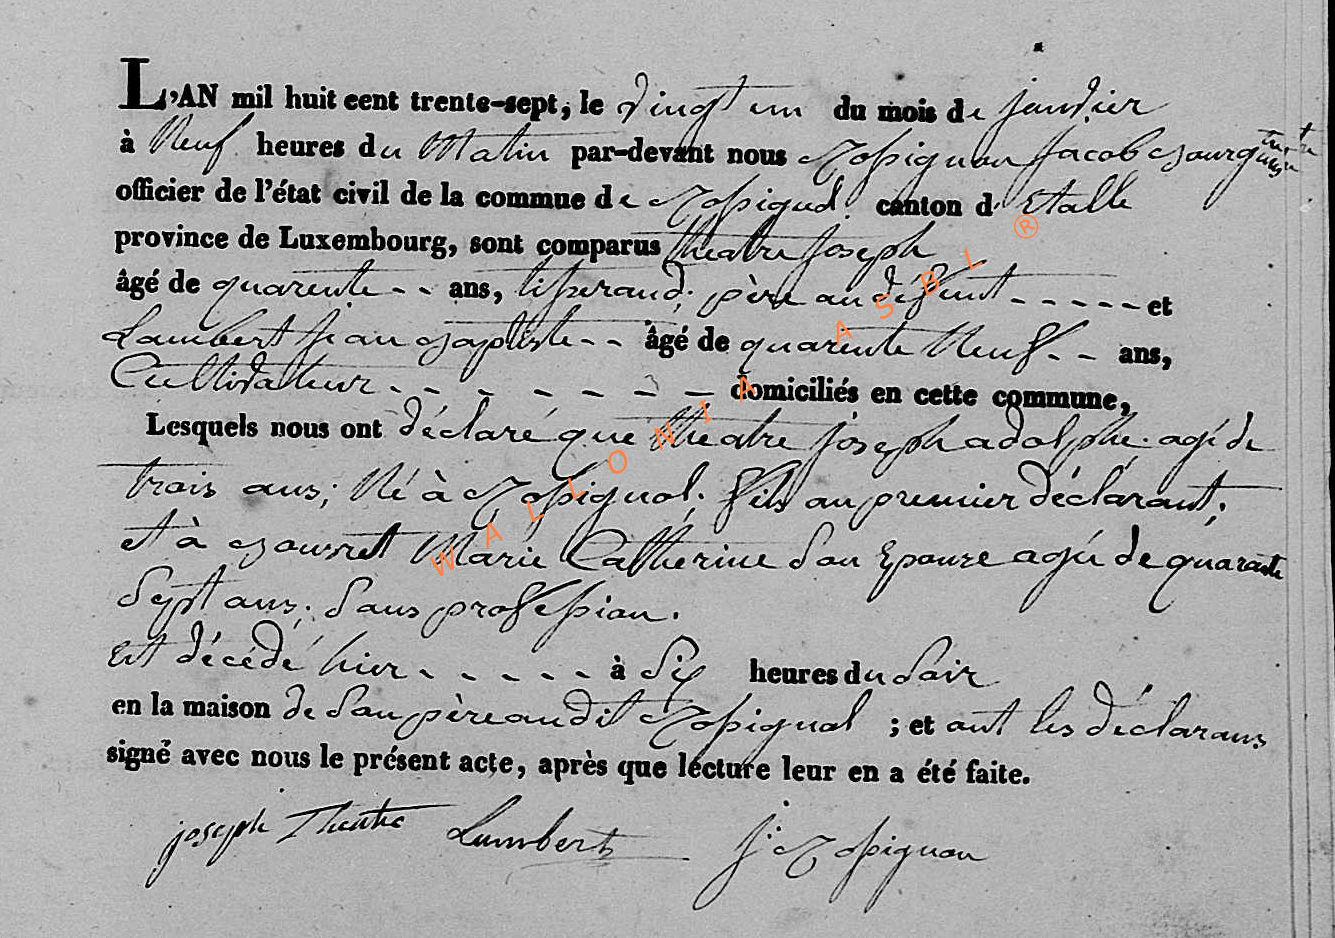 L'AN mil huit cent trente-sept, le vingt un du mois de janvier
à Neuf heures du Matin par-devant nous Rossignon Jacob Bourgmestre
officier de l'état civil de la commune de Rossignol. canton d' Etalle
province de Luxembourg, sont comparus theatre joseph
âgé de quarente -- ans, tisserand; père au défunt ----- et
Lambert jean Baptiste -- âgé de quarente Neuf -- ans,
Cultivateur - - - - - - - domiciliés en cette commune,
Lesquels nous ont déclaré que theatre joseph adolphe. agé de
trois ans; Né à Rossignol; fils au premier déclarant;
et à Marie Catherine son Epouze agée de quarante
Sept ans; Sans profession.
Est décédé hier - - - - - à Six heures du Soir
en la maison de Son père audit Rossignol ; et ont les déclarans
signé avec nous le présent acte, après que lecture leur en a été faite.
joseph Theatre Lambert J: Rossignon
WALLONIA ASBL ®